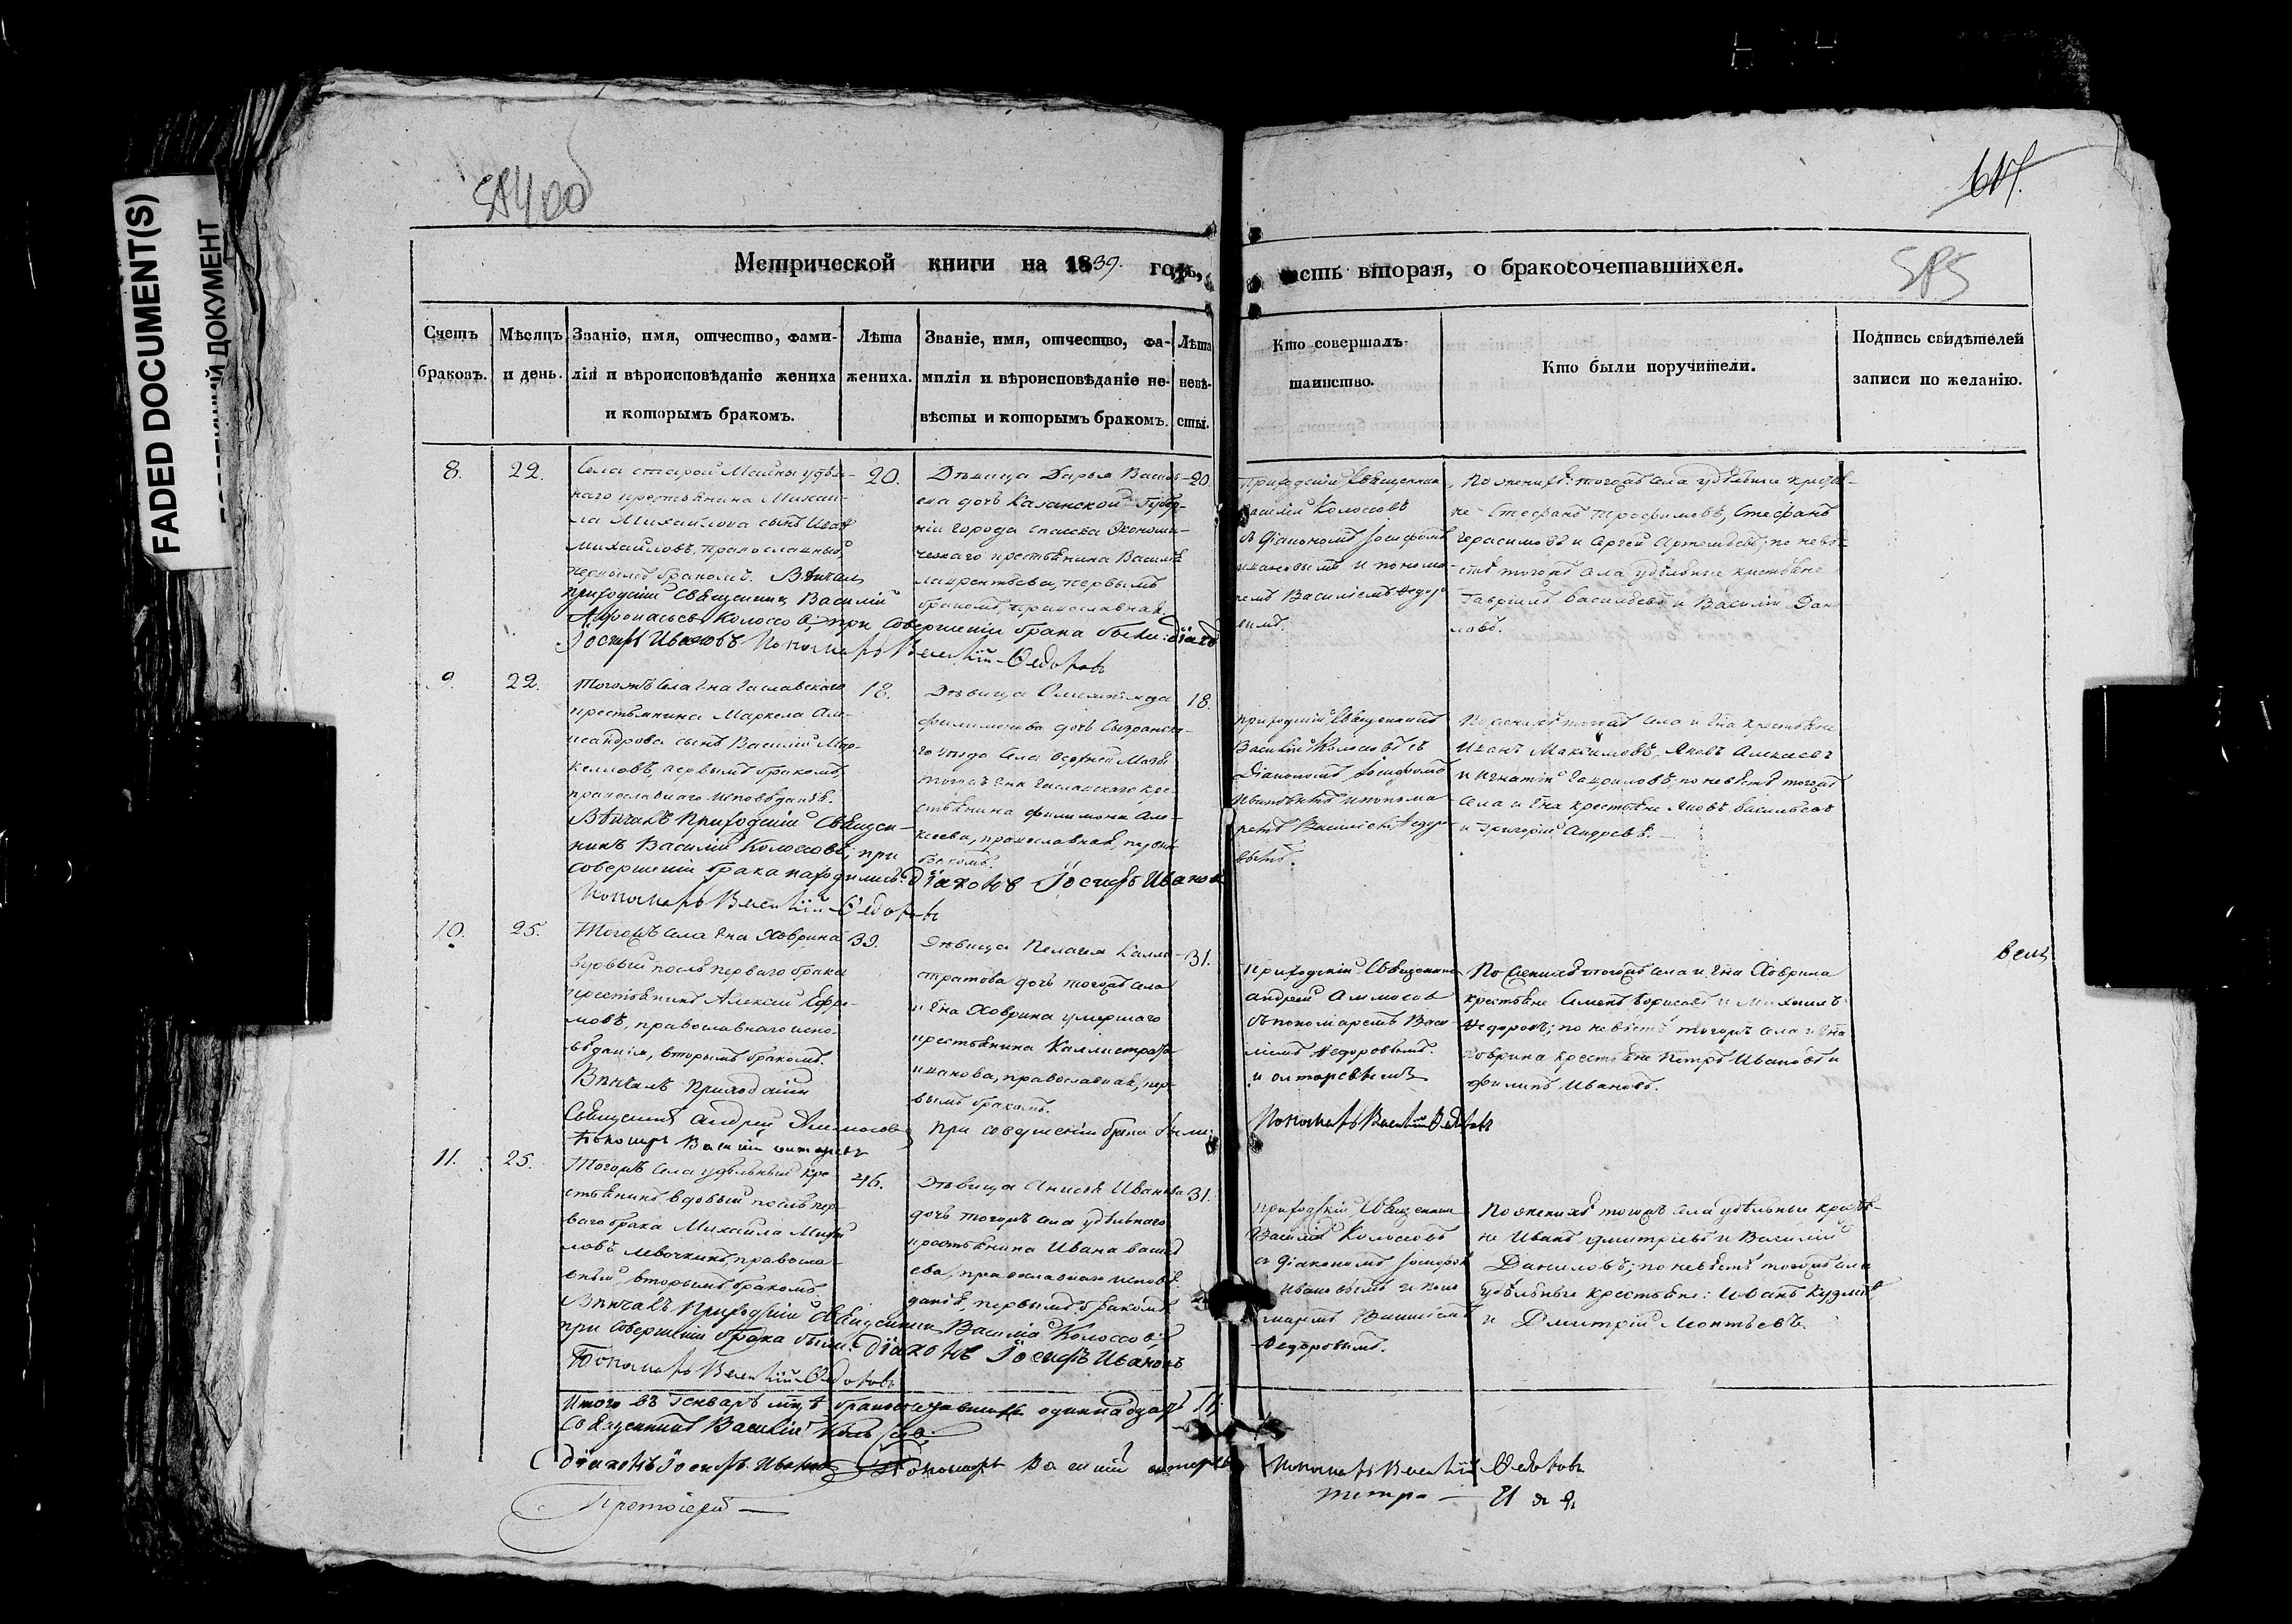 FADED DOCUMENT(S)
ДОКУМЕНТ
617.
585
Метрической книги на 1839. годъ,
асть вторая, о бракосочетавшихся.
Счетъ браковъ.
Мѣсяцъ и день.
Званіе, имя, отчество, фами-
лія и вѣроисповѣданіе жениха
и которымъ бракомъ.
Лѣта
жениха.
Званіе, имя, отчество, фа-
милія и вѣроисповѣданіе не-
вѣсты и которымъ бракомъ.
Лѣта
невѣ-
сты.
Кто совершалъ
таинство.
Кто были поручители.
Подпись свидѣтелей
записи по желанію.
8.
22.
Села старой Майны удѣль-
наго крестьянина Михаи-
ла Михайлова сынъ Иванъ
Михайловъ, православный,
первымъ бракомъ. Вѣнчалъ
приходскій Священникъ Василій
Колоссовъ; при совершеніи брака были: діаконъ
Іосифъ Ивановъ Пономарь Василій Ѳедоровъ
20.
Дѣвица Дарья Василь-
ева дочь Казанской Губер-
ніи города Спасска Экономи-
ческаго крестьянина Василья
Лаврентьева, первымъ
бракомъ, православная.
20.
Приходскій Священникъ
Василій Колоссовъ
съ діакономъ Іосифомъ
Ивановымъ и понома-
ремъ Василіемъ Ѳедоро-
вымъ.
По женихѣ: тогожъ села удѣльные крестья-
не Стефанъ Трофимовъ, Стефанъ
Герасимовъ и Сергей Артемьевъ; по невѣ-
стѣ тогожъ села удѣльные крестьяне
Гавріилъ Васильевъ и Василій Дани-
ловъ.
9.
22.
Тогожъ села г-на
крестьянина Маркела Але-
ксандрова сынъ Василій Мар-
келловъ, первымъ бракомъ,
православнаго исповѣданія.
Вѣнчалъ Приходскій Священ-
никъ Василій Колоссовъ; при
совершеніи брака находились: діаконъ Іосифъ Ивановъ
Пономарь Василій Ѳедоровъ
18.
Дѣвица Олимпіада
Филимонова дочь Сызранска-
го уѣзда села верхней Мазы
тогожъ г-на крес-
тьянина Филимона Але-
ксеева, православная, первымъ
бракомъ.
18.
Приходскій Священникъ
Василій Колоссовъ съ
Діакономъ Іосифомъ
Ивановымъ и понома-
ремъ Василіемъ Ѳедоро-
вымъ.
По женихѣ тогожъ села и г-на крестьяне
Иванъ Максимовъ, Яковъ Алексеевъ
и Игнатій Гавриловъ; по невѣстѣ тогожъ
села и г-на крестьяне Яковъ Васильевъ
и Григорій Андреевъ.
10.
25.
Тогожъ села г-на Ховрина
вдовый послѣ перваго брака
крестьянинъ Алексей Ефре-
мовъ, православнаго испо-
вѣданія, вторымъ бракомъ.
Вѣнчалъ Приходскій
Священникъ Андрей Аммосовъ, при совершеніи брака были:
39.
Дѣвица Пелагея Калли-
стратова дочь тогожъ села
и г-на Ховрина умершаго
крестьянина Каллистрата
Иванова, православная, пер-
вымъ бракомъ.
31.
Приходскій Священникъ
Андрей Аммосовъ
съ пономаремъ Васи-
ліемъ Ѳедоровымъ.
Пономарь Василій Ѳедоровъ
По женихѣ тогожъ села и г-на Ховрина
крестьяне Семенъ Борисовъ и Михаилъ
Ѳедоровъ; по невѣстѣ тогожъ села и г-на
Ховрина крестьяне Петръ Ивановъ и
Филипъ Ивановъ.
11.
25.
Тогожъ села удѣльный кре-
стьянинъ вдовый послѣ пер-
ваго брака Михайла Михай-
ловъ Левочкинъ, правосла-
вный, вторымъ бракомъ.
Вѣнчалъ Приходскій Священникъ Василій Колоссовъ;
при совершеніи брака были: діаконъ Іосифъ Ивановъ
Пономарь Василій Ѳедоровъ
46.
Дѣвица Анисья Иванова
дочь тогожъ села удѣльнаго
крестьянина Ивана Василь-
ева, православнаго исповѣ-
данія, первымъ бракомъ.
31.
Приходскій Священникъ
Василій Колоссовъ
съ діакономъ Іосифомъ
Ивановымъ и поно-
маремъ Василіемъ
Ѳедоровымъ.
По женихѣ тогожъ села удѣльные крестья-
не Иванъ Дмитріевъ и Василій
Даниловъ; по невѣстѣ тогожъ села
удѣльные крестьяне: Иванъ Кузминъ
и Дмитрій Леонтьевъ.
Итого въ Генварѣ м-цѣ бракосочетавшихся одиннадцать 11.
Священникъ Василій Колоссовъ
Діаконъ Іосифъ Ивановъ Пономарь Василій
Пономарь Василій Ѳедоровъ
Протоіерей